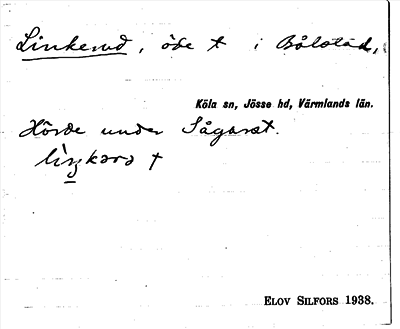 Linkerud, öde t i Bålstad,
Köla sn, Jösse hd, Värmlands län.
Hörde under Sågarst.
Elov Silfors 1938.